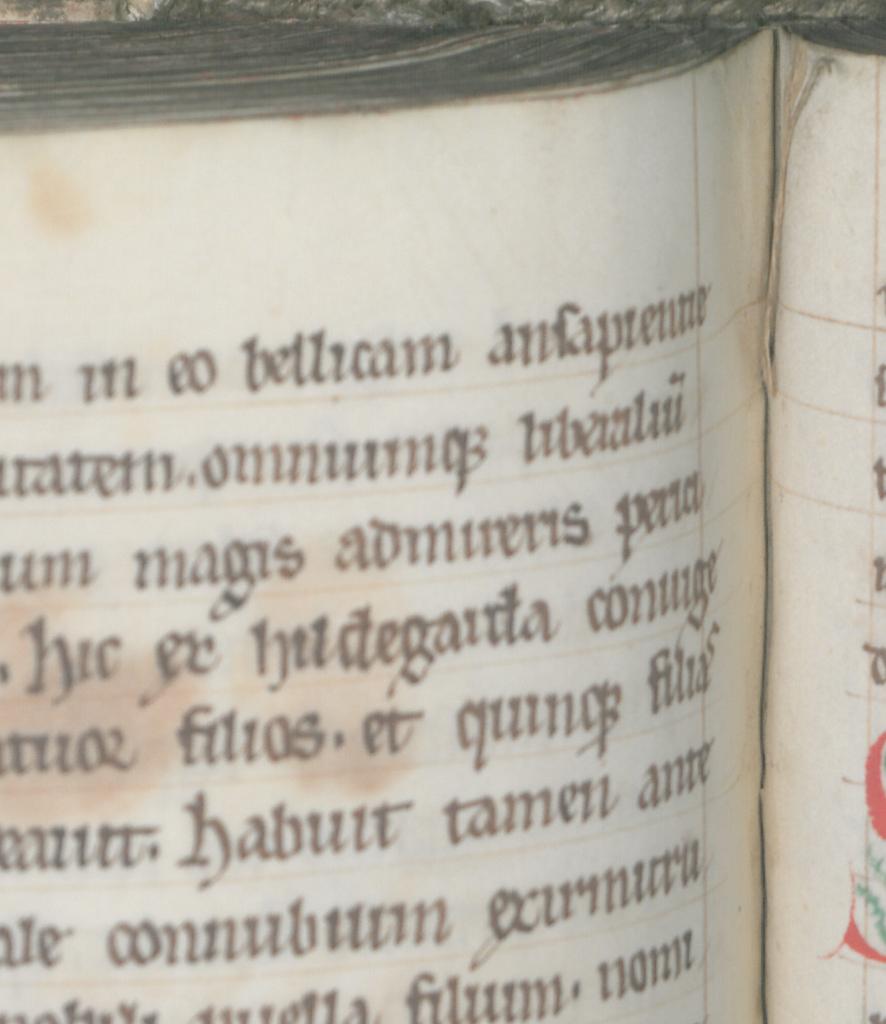 m in eo bellicam an sapientie
itatem. omniumq; liberaliū
um magis admireris perici
. hic ex hildegarda coniuge
atuor filios. et quinq; filias
eauit. habuit tamen ante
ale connubium eximiurū
puella filium. nomi